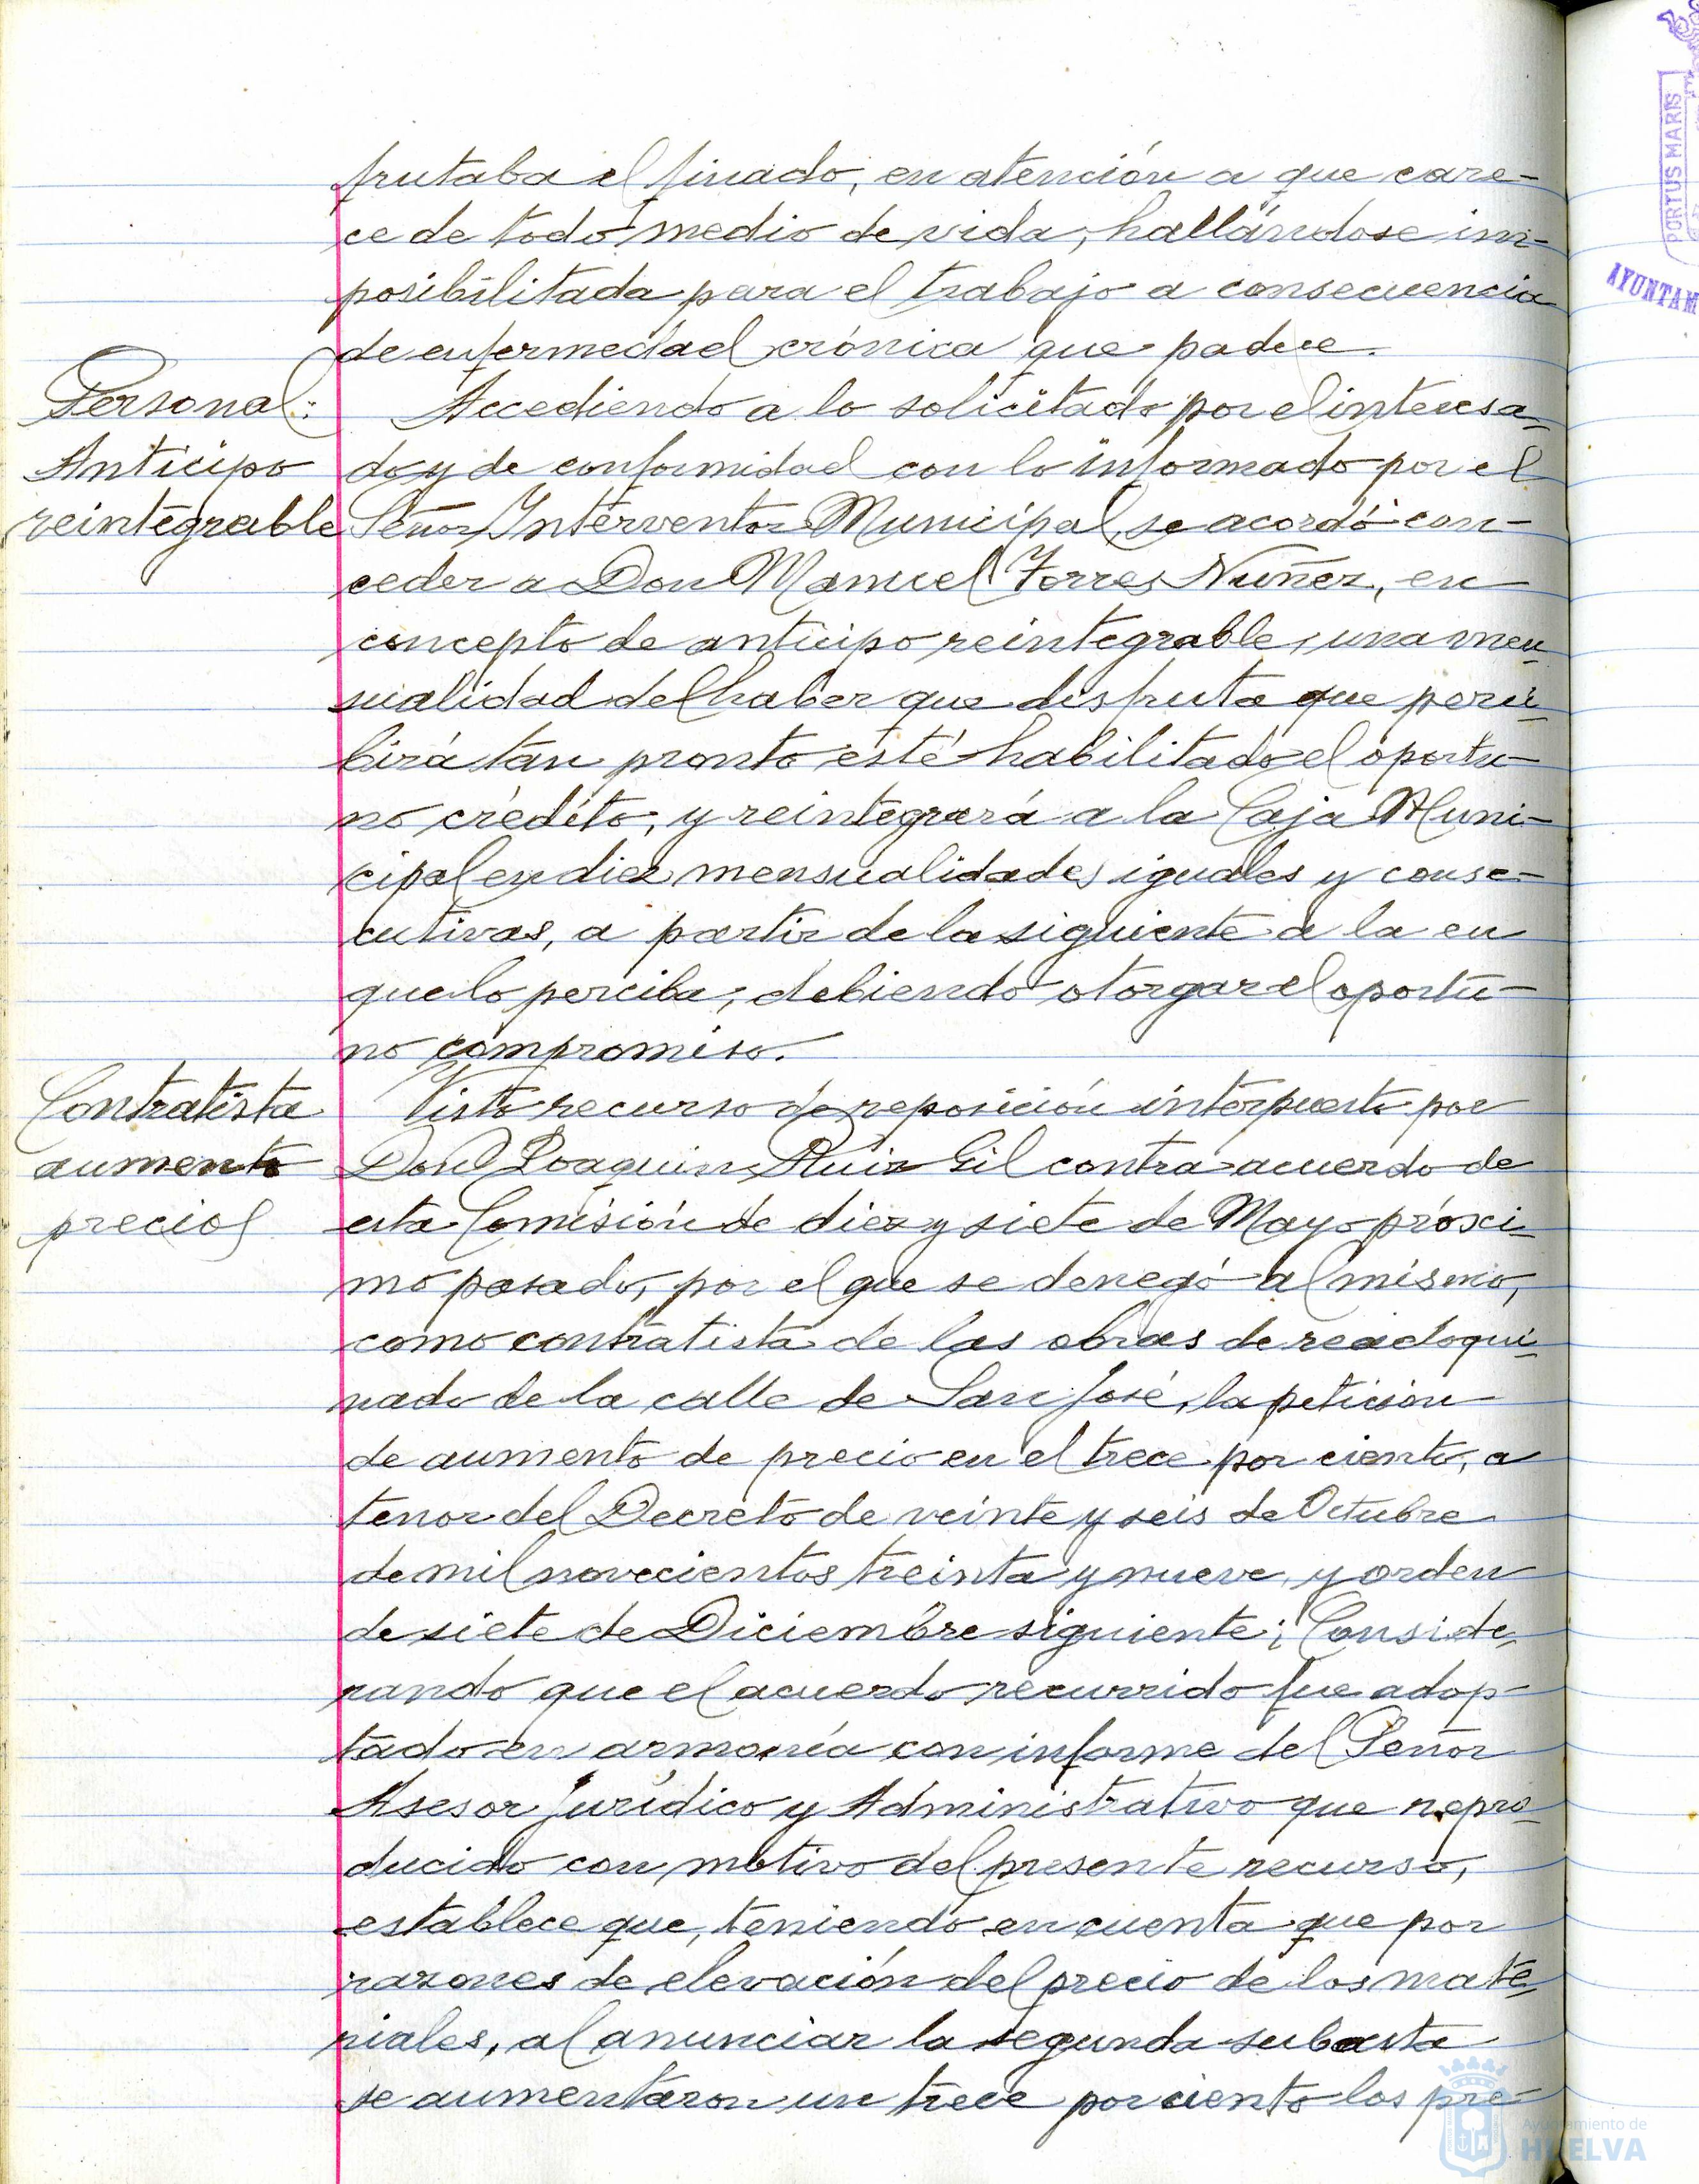 frutaba el finado, en atención a que care-
ce de todo medio de vida, hallándose im-
posibilitada para el trabajo a consecuencia
de enfermedad crónica que padece.
Personal:
Anticipo
reintegrable
Accediendo a lo solicitado por el interesa-
do y de conformidad con lo informado por el
Señor Interventor Municipal, se acordó con-
ceder a Don Manuel Torres Nuñez, en
concepto de anticipo reintegrable, una men-
sualidad del haber que disfruta que perci-
birá tan pronto esté habilitado el oportu-
no crédito, y reintegrará a la Caja Muni-
cipal en diez mensualidades iguales y conse-
cutivas, a partir de la siguiente a la en
que lo perciba, debiendo otorgar el oportu-
no compromiso.
Contratista
aumento
precios
Visto recurso de reposición interpuesto por
Don Joaquin Ruiz Gil contra acuerdo de
esta Comisión de diez y siete de Mayo próxi-
mo pasado, por el que se denegó al mismo,
como contratista de las obras de readoqui-
nado de la calle de San José, la petición
de aumento de precio en el trece por ciento, a
tenor del Decreto de veinte y seis de Octubre
de mil novecientos treinta y nueve, y orden
de siete de Diciembre siguiente; Conside-
rando que el acuerdo recurrido fue adop-
tado en armonía con informe del Señor
Asesor Jurídico y Administrativo que repro-
ducido con motivo del presente recurso,
establece que, teniendo en cuenta que por
razones de elevación del precio de los mate-
riales, al anunciar la segunda subasta
se aumentaron un trece por ciento los pre-
PORTUS MARIS
AYUNTAM
Ayuntamiento de
HUELVA